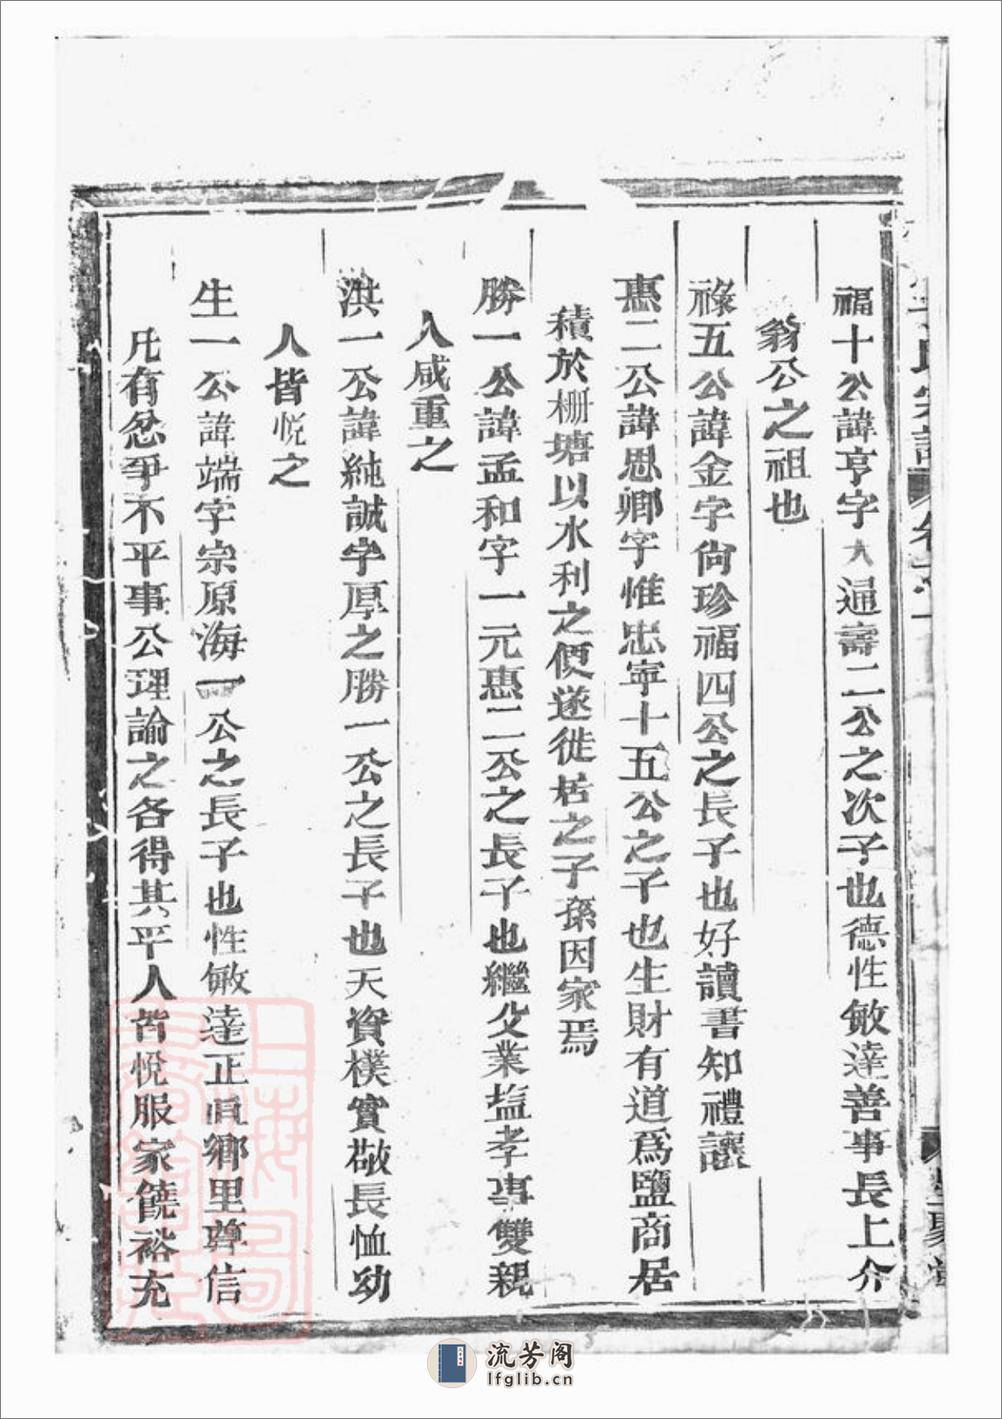 福十公諱亨字大通壽二公之次子也德性敏達善事長上介
翁公之祖也
祿五公諱金字尙珍福四公之長子也好讀書知禮讓
惠二公諱思卿字惟忠寧十五公之子也生財有道爲鹽商居
積於柵塘以水利之便遂徙居之子孫因家焉
勝一公諱孟和字一元惠二公之長子也繼父業盐孝事雙親
人咸重之
洪一公諱純誠字厚之勝一公之長子也天資樸實敬長恤幼
人皆悦之
生一公諱端字宗原海一公之長子也性敏達正直鄉里尊信
凡有忿爭不平事公理諭之各得其平人皆悅服家饒裕充
流芳阁
lfglib.cn